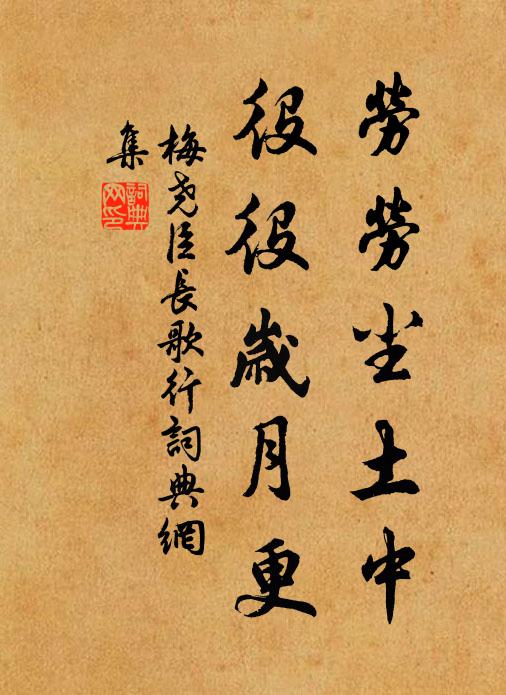 勞勞尘土中
役役歲月更
梅堯臣長歌行詞典網
集
詞典
网印